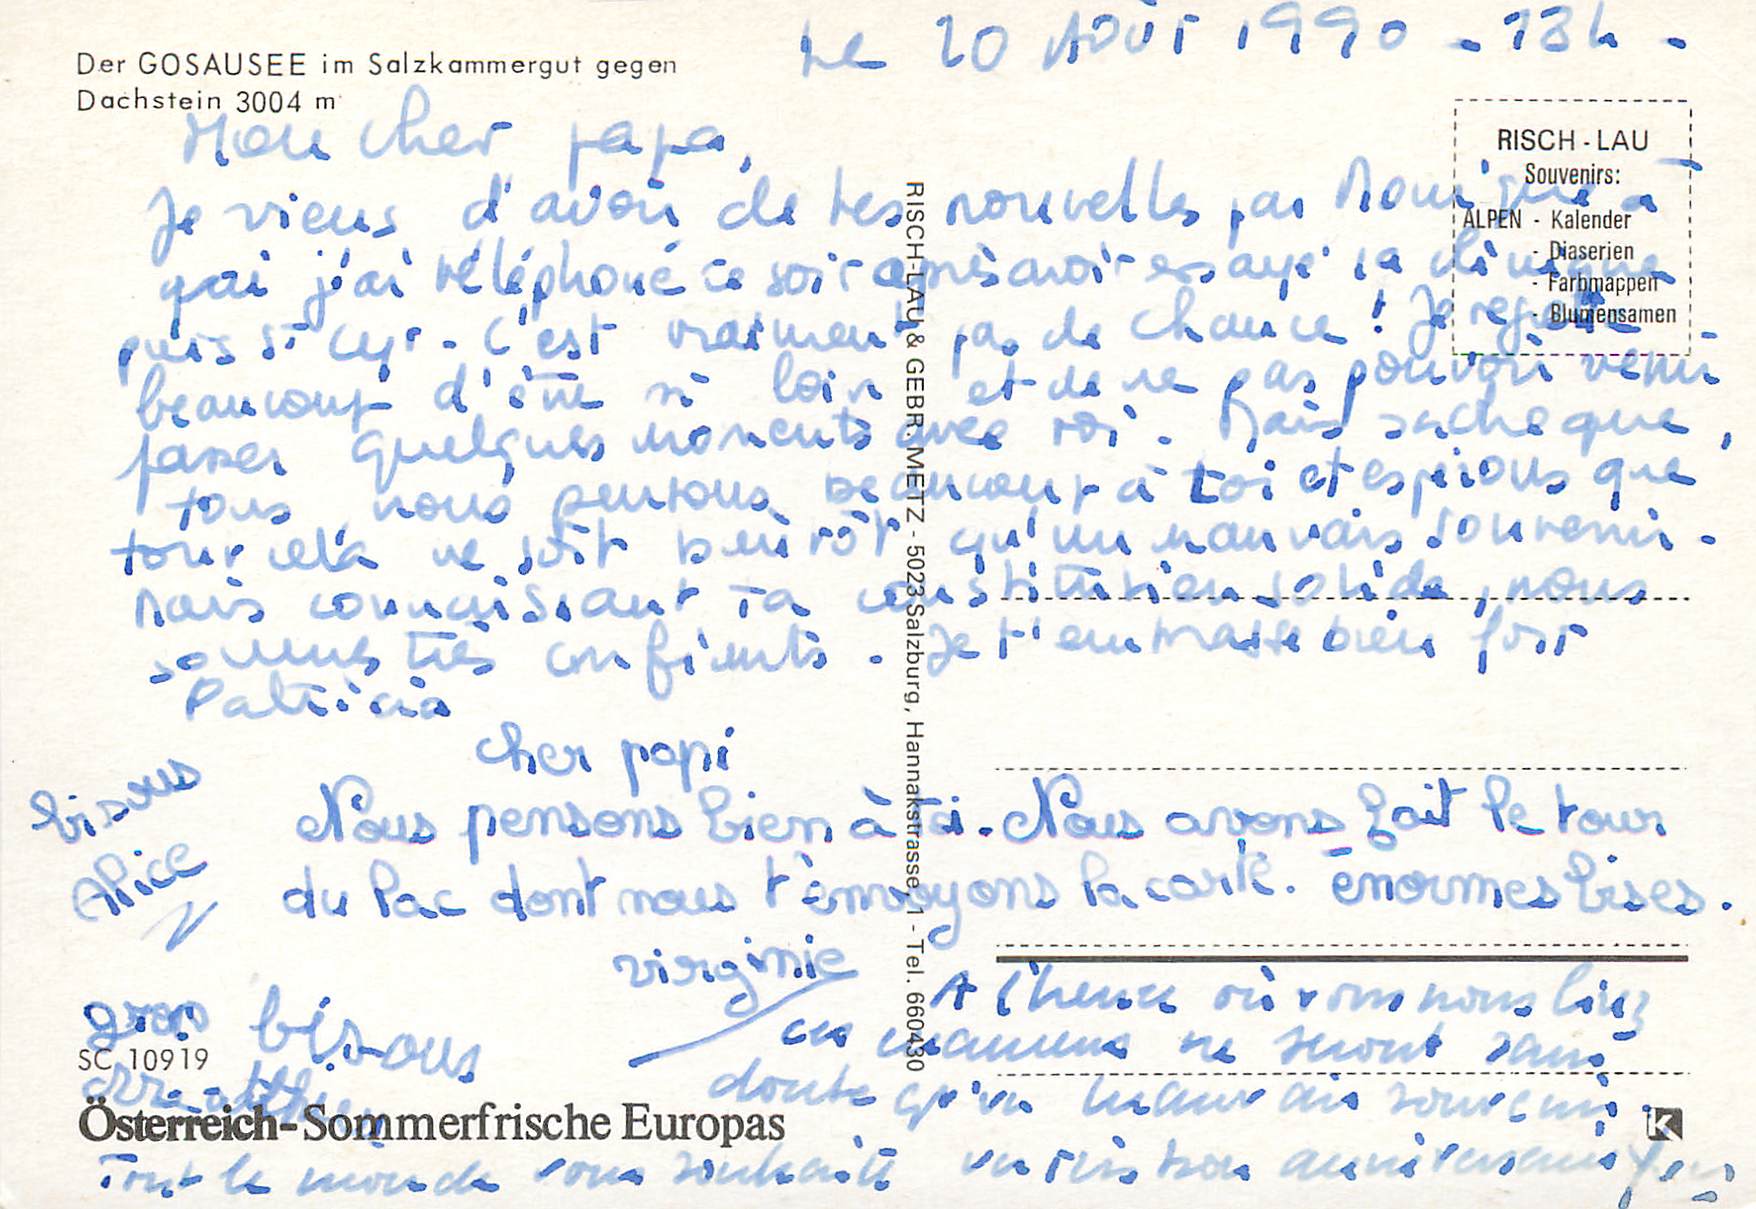 Der GOSAUSEE im Salzkammergut gegen
Dachstein 3004 m
Le 20 Août 1990 - 13h -
RISCH - LAU
Souvenirs:
ALPEN - Kalender
- Diaserien
- Farbmappen
- Blumensamen
Mon cher papa,
Je viens d'avoir de tes nouvelles par Monique à
qui j'ai téléphoné ce soir après avoir essayé la clinique
puis St Cyr. C'est vraiment pas de chance ! Je regrette
beaucoup d'être si loin et de ne pas pouvoir venir
passer quelques moments avec toi. Mais sache que,
tous nous pensons beaucoup à toi et espérons que
tout cela ne soit bientôt qu'un mauvais souvenir.
Mais connaissant ta constitution solide, nous
sommes très confiants. Je t'embrasse bien fort
Patricia
cher papi
Nous pensons bien à toi. Nous avons fait le tour
du lac dont nous t'envoyons la carte. énormes bises.
virginie
bisous
Alice
gros bisous
A l'heure où vous nous lirez
ces examens ne seront sans
doute qu'un mauvais souvenir.
Tout le monde vous souhaite un très bon anniversaire
RISCH-LAU & GEBR. METZ - 5023 Salzburg, Hannakstrasse 1 - Tel. 660430
SC 10919
Österreich-Sommerfrische Europas
K